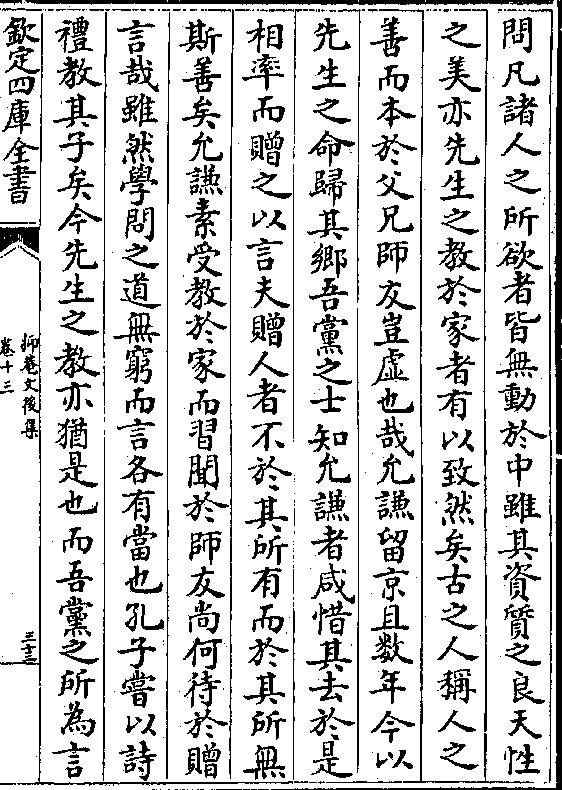 問凡諸人之所欲者皆無動於中雖其資質之良天性
之美亦先生之教於家者有以致然矣古之人稱人之
善而本於父兄師友豈虛也哉允謙留京且数年今以
先生之命歸其鄉吾黨之士知允謙者咸惜其去於是
相率而贈之以言夫贈人者不於其所有而於其所無
斯善矣允謙素受教於家而習聞於師友尚何待於贈
言哉雖然學問之道無窮而言各有當也孔子嘗以詩
禮教其子矣今先生之教亦猶是也而吾黨之所為言
欽定四庫全書
抑菴文後集
卷十三
三十三